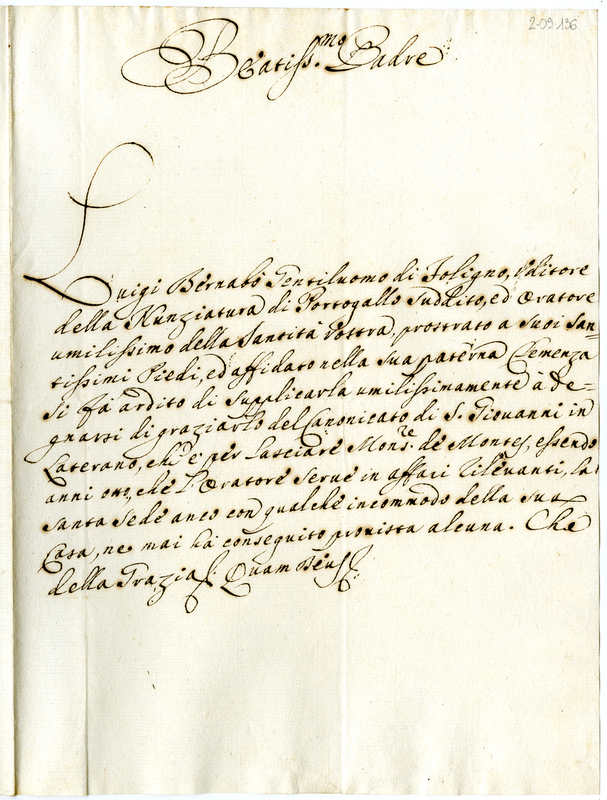 2-09-136
Beatiss.mo Padre
Luigi Bernabò Gentiluomo di Foligno, Uditore
della Nunziatura di Portogallo Suddito, ed Oratore
umilissimo della Santità Vostra, prostrato a suoi San=
tissimi Piedi, ed affidato nella sua paterna Clemenza
si fà ardito di supplicarla umilissimamente à de=
gnarsi di graziarlo del Canonicato di S. Giovanni in
Laterano, ch'è per lasciare Mons.re de Montes, essendo
anni otto, che l'Oratore serve in affari rilevanti, la
Santa Sede anco con qualche incommodo della sua
Casa, ne mai hà conseguito provista alcuna. Che
della Grazia Quam Deus